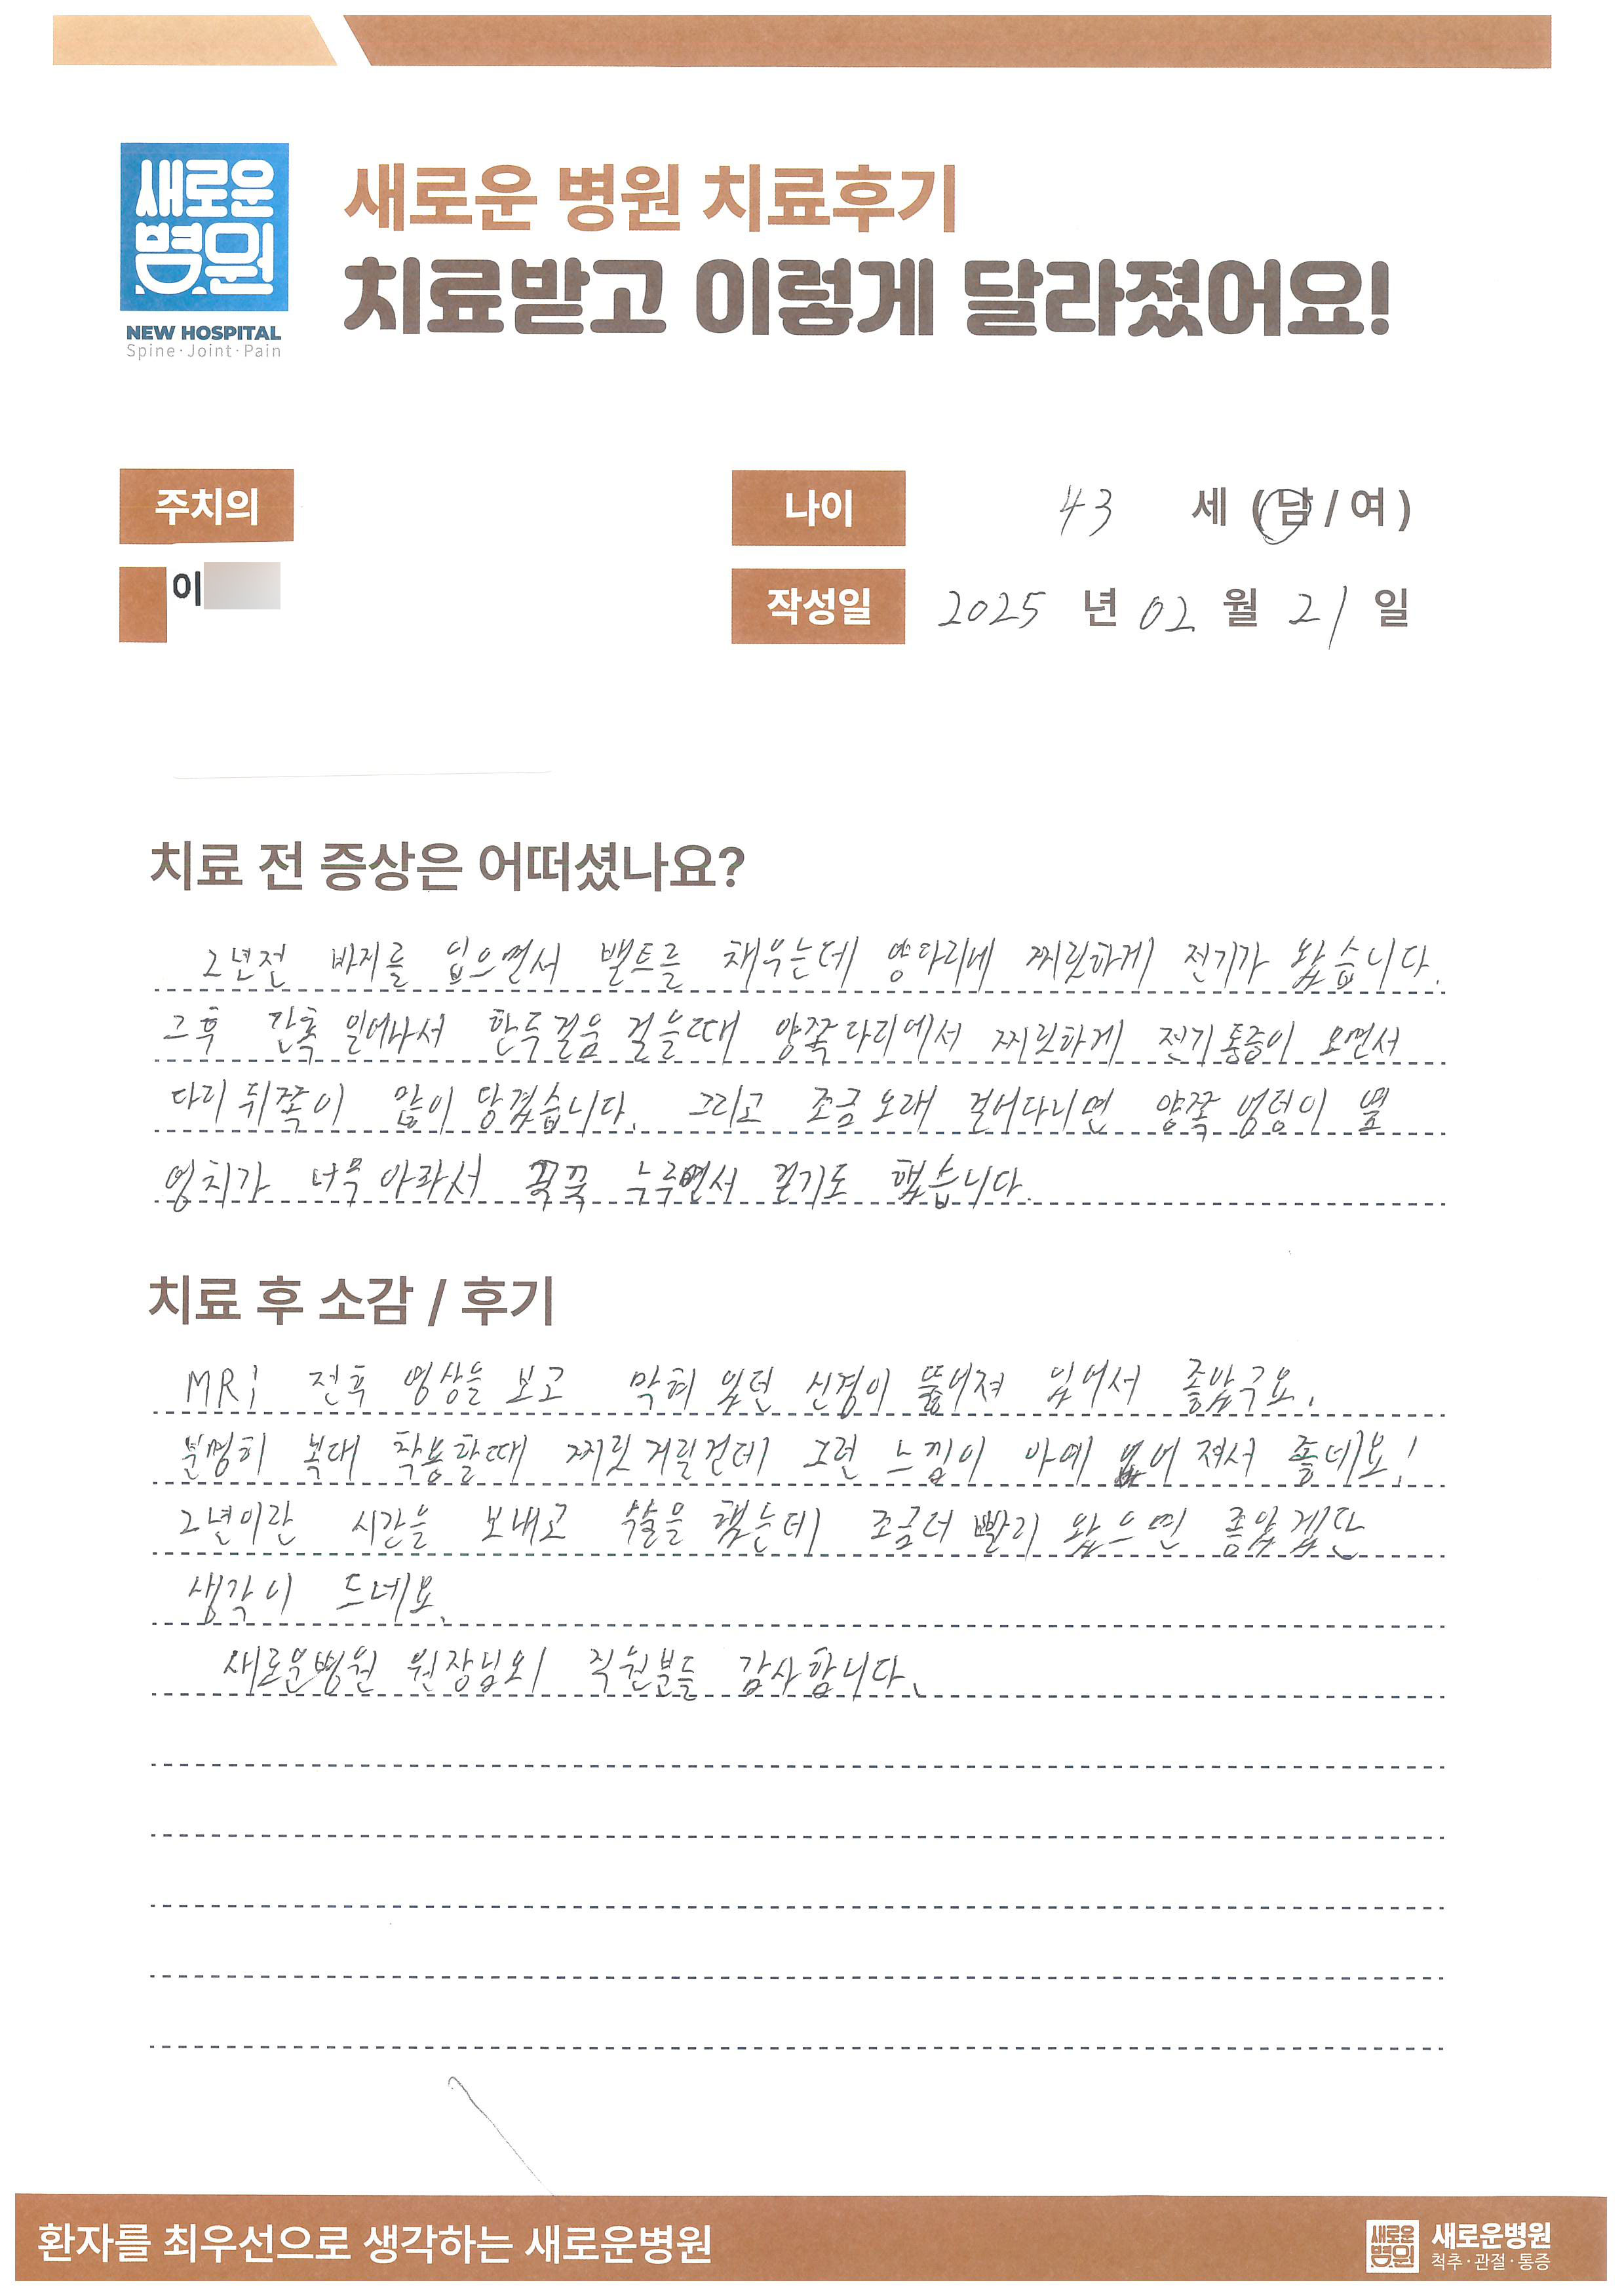 새로운
병원
NEW HOSPITAL
Spine·Joint·Pain
새로운 병원 치료후기
치료받고 이렇게 달라졌어요!
주치의
나이 43 세 (남/여)
이
작성일 2025 년 02 월 21 일
치료 전 증상은 어떠셨나요?
2년전 바지를 입으면서 밸트를 채우는데 양다리에 찌릿하게 전기가 왔습니다.
그후 간혹 일어나서 한두걸음 걸을때 양쪽다리에서 찌릿하게 전기통증이 오면서
다리 뒤쪽이 많이 당겼습니다. 그리고 조금 오래 걸어다니면 양쪽 엉덩이 옆
엉치가 너무 아파서 꾹꾹 누루면서 걷기도 했습니다.
치료 후 소감 / 후기
MRi 전후 영상을 보고 막혀 있던 신경이 뚫어져 있어서 좋았구요.
분명히 복대 착용할때 찌릿 거릴건데 그런 느낌이 아예 없어 져서 좋네요!
2년이란 시간을 보내고 수술을 했는데 조금더 빨리 왔으면 좋았겠단
생각이 드네요.
새로운병원 원장님외 직원분들 감사합니다.
환자를 최우선으로 생각하는 새로운병원
새로운
병원
새로운병원
척추·관절·통증